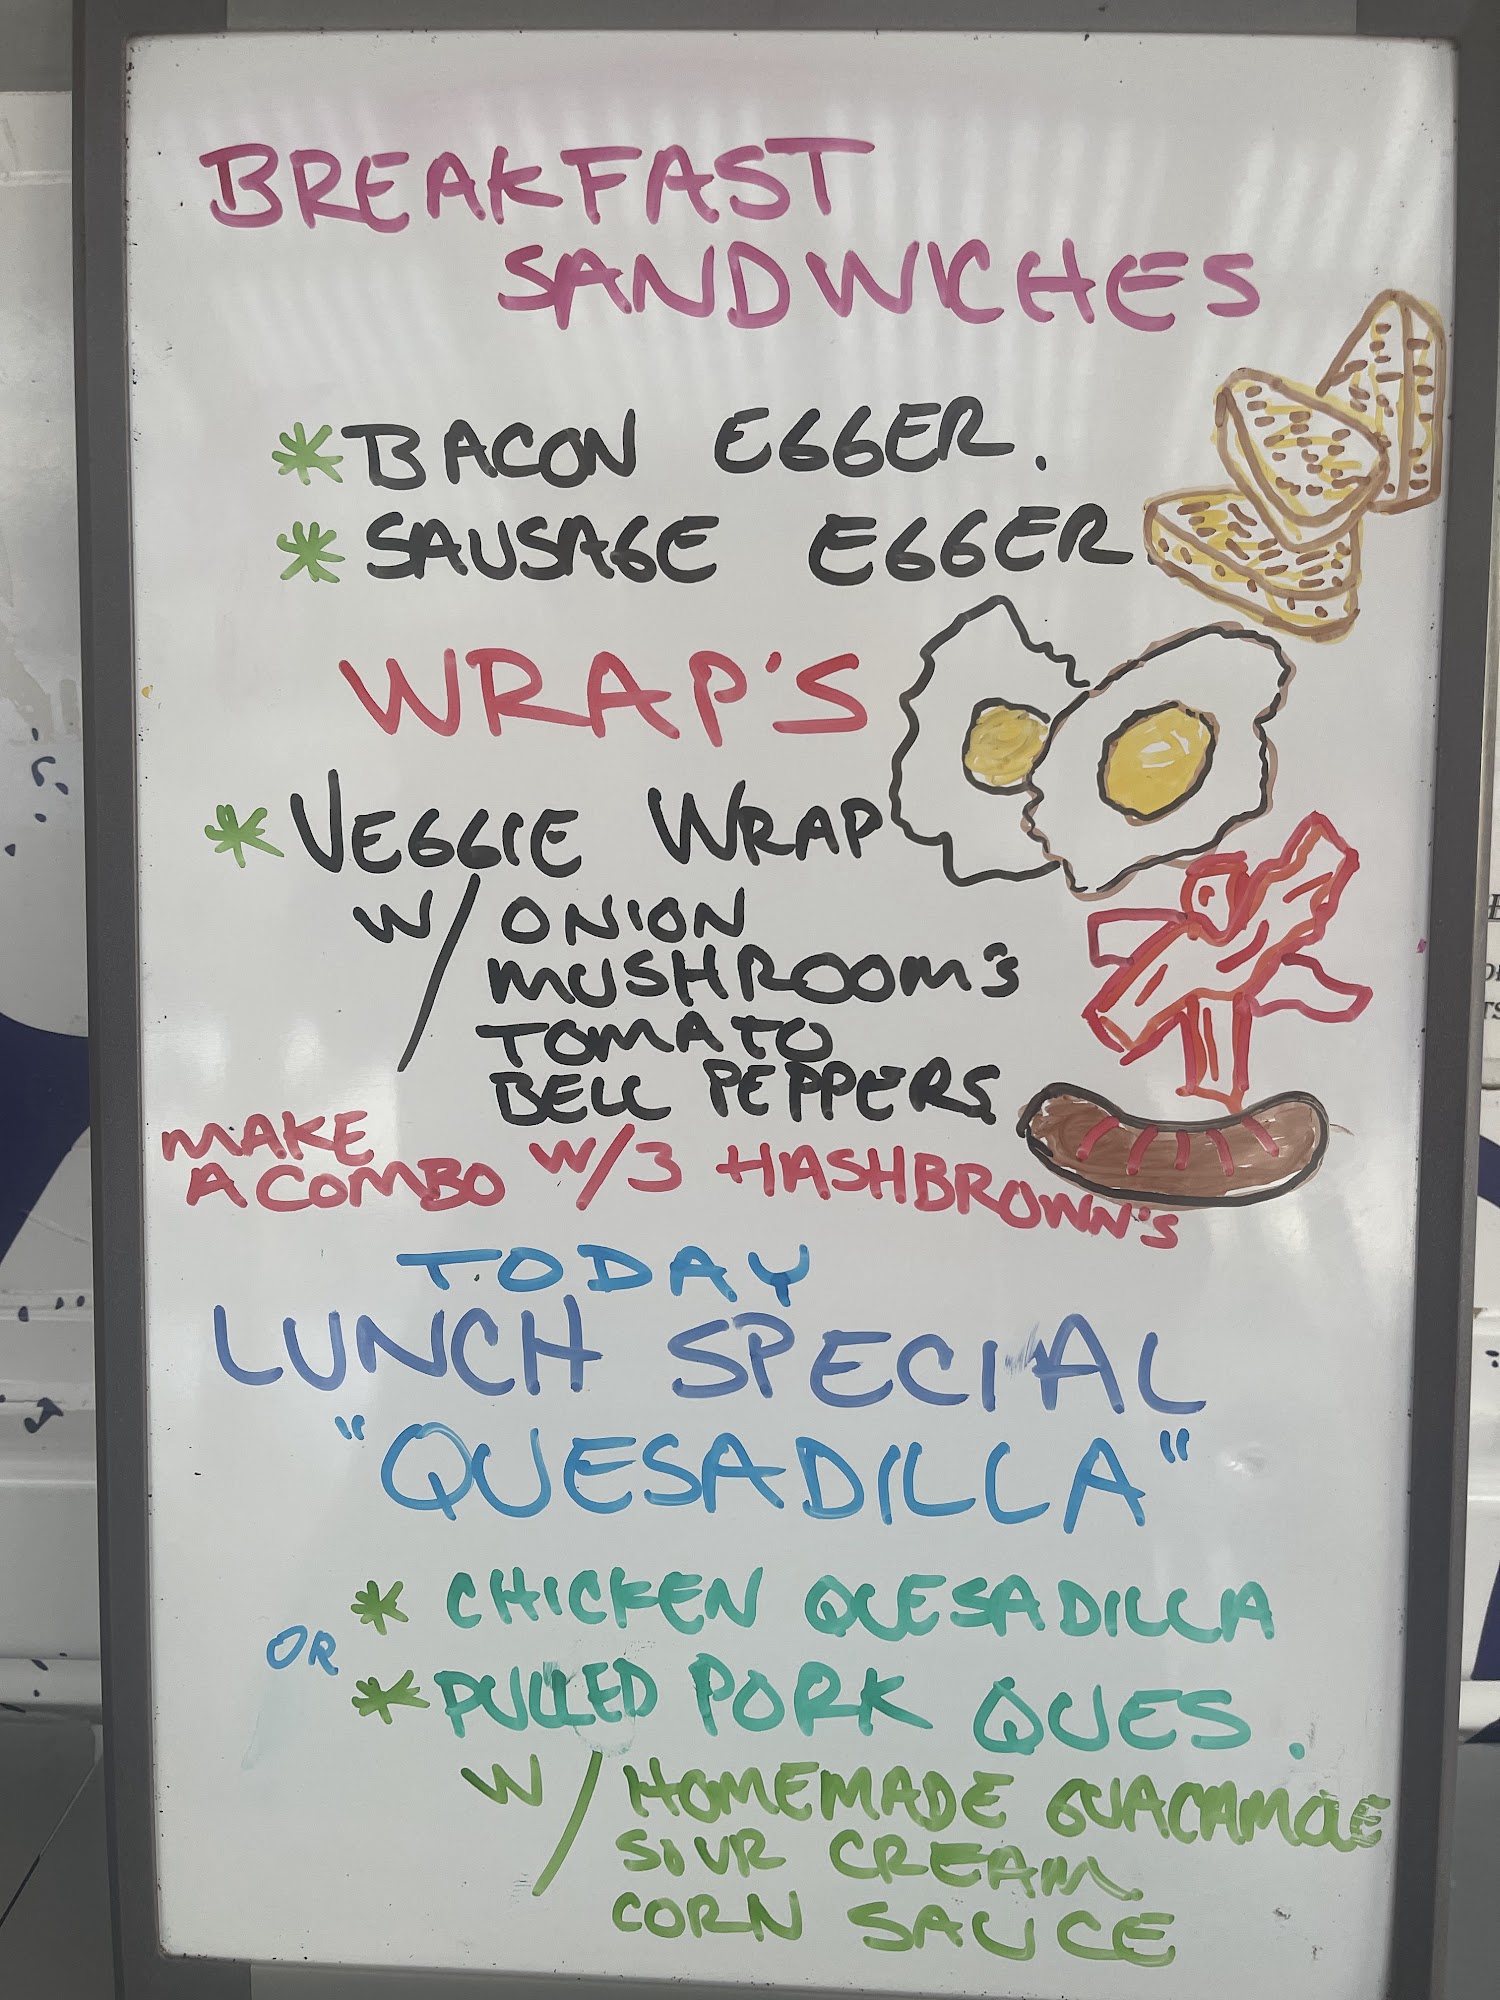 BREAKFAST
SANDWICHES
* BACON EGGER.
* SAUSAGE EGGER
WRAP'S
* VEGGIE WRAP
W/ ONION
MUSHROOM'S
TOMATO
BELL PEPPERS
MAKE
A COMBO W/3 HASHBROWN'S
TODAY
LUNCH SPECIAL
"QUESADILLA"
* CHICKEN QUESADILLA
OR
* PULLED PORK QUES.
W/ HOMEMADE GUACAMOLE
SOUR CREAM
CORN SAUCE